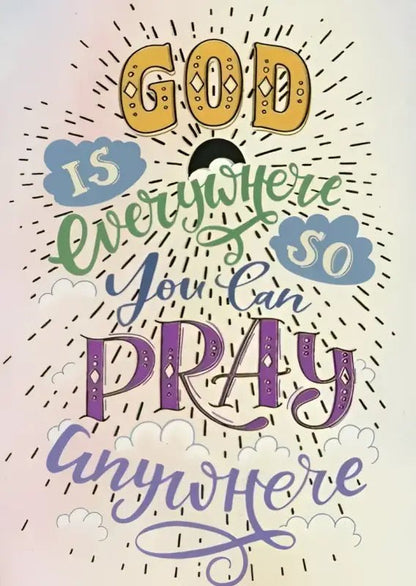 GOD
IS
everywhere
SO
You Can
PRAY
anywhere